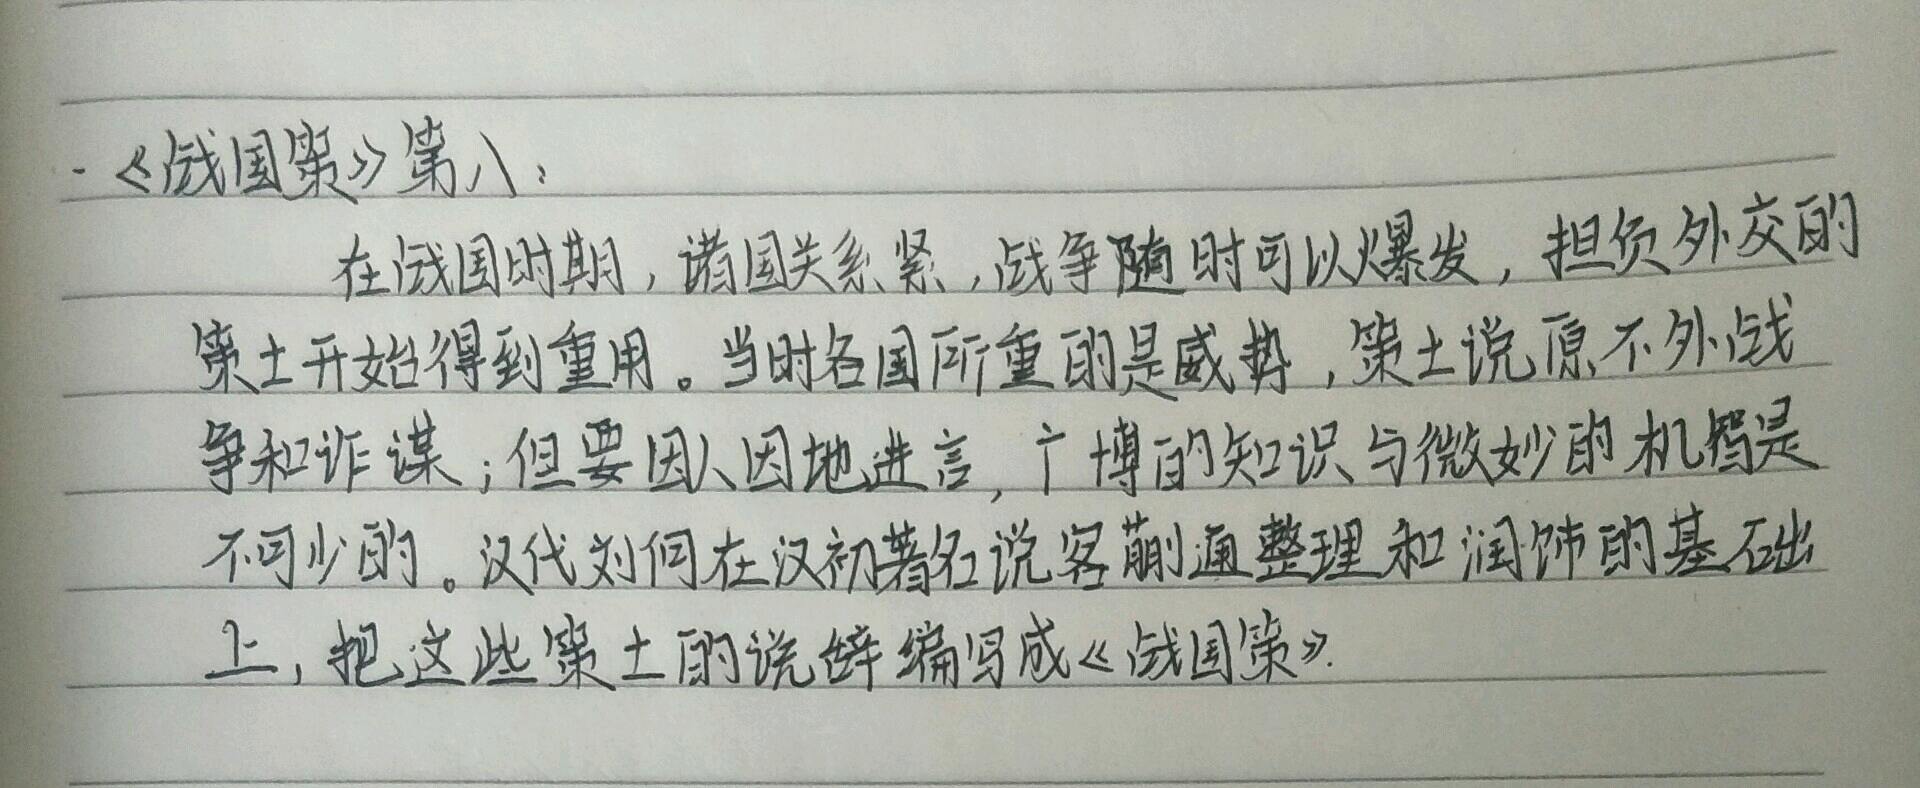 ·《战国策》第八：
在战国时期，诸国关系紧，战争随时可以爆发，担负外交的
策士开始得到重用。当时各国所重的是威势，策士说原不外战
争和诈谋；但要因人因地进言，广博的知识与微妙的机智是
不可少的。汉代刘向在汉初著名说客蒯通整理和润饰的基础
上，把这些策士的说辞编写成《战国策》.